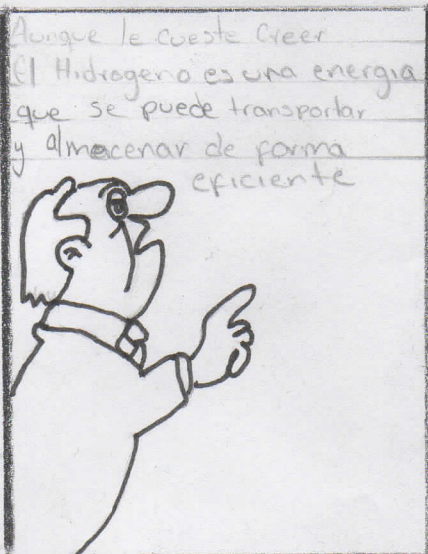 Aunque le cueste Creer
El Hidrogeno es una energia
que se puede transportar
y almacenar de forma
eficiente